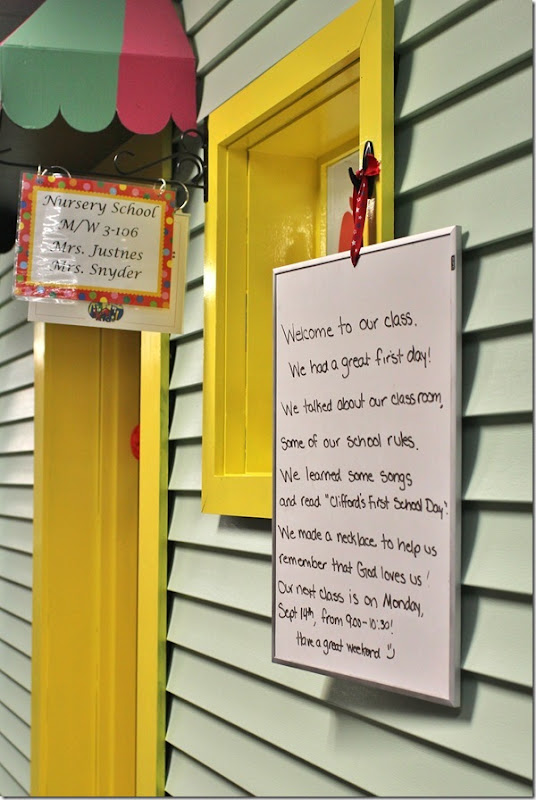 Nursery School
M/W 3-106
Mrs. Justnes
Mrs. Snyder
Welcome to our class.
We had a great first day!
We talked about our classroom,
some of our school rules.
We learned some songs
and read "Clifford's First School Day".
We made a necklace to help us
remember that God loves us!
Our next class is on Monday,
Sept 14th, from 9:00-10:30!
Have a great weekend